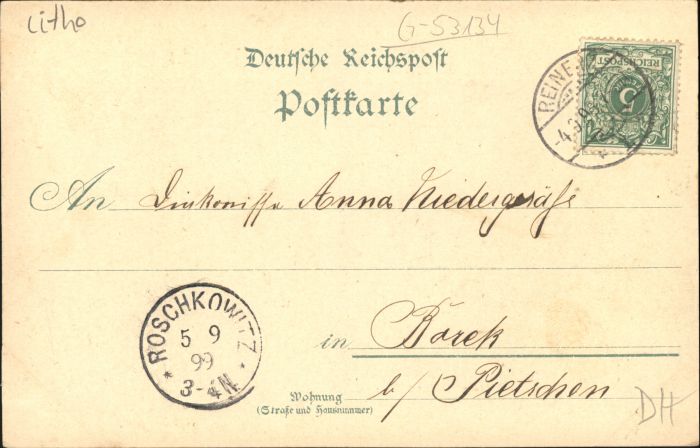 Litho
G-53134
Deutsche Reichspost
Postkarte
REICHSPOST
5
REINE
-4.9.99
An Diakonisse Anna Niedergesäß
ROSCHKOWITZ
5 9
99
3-4N.
in Borek
b/ Pietschen
Wohnung
(Straße und Hausnummer)
DH